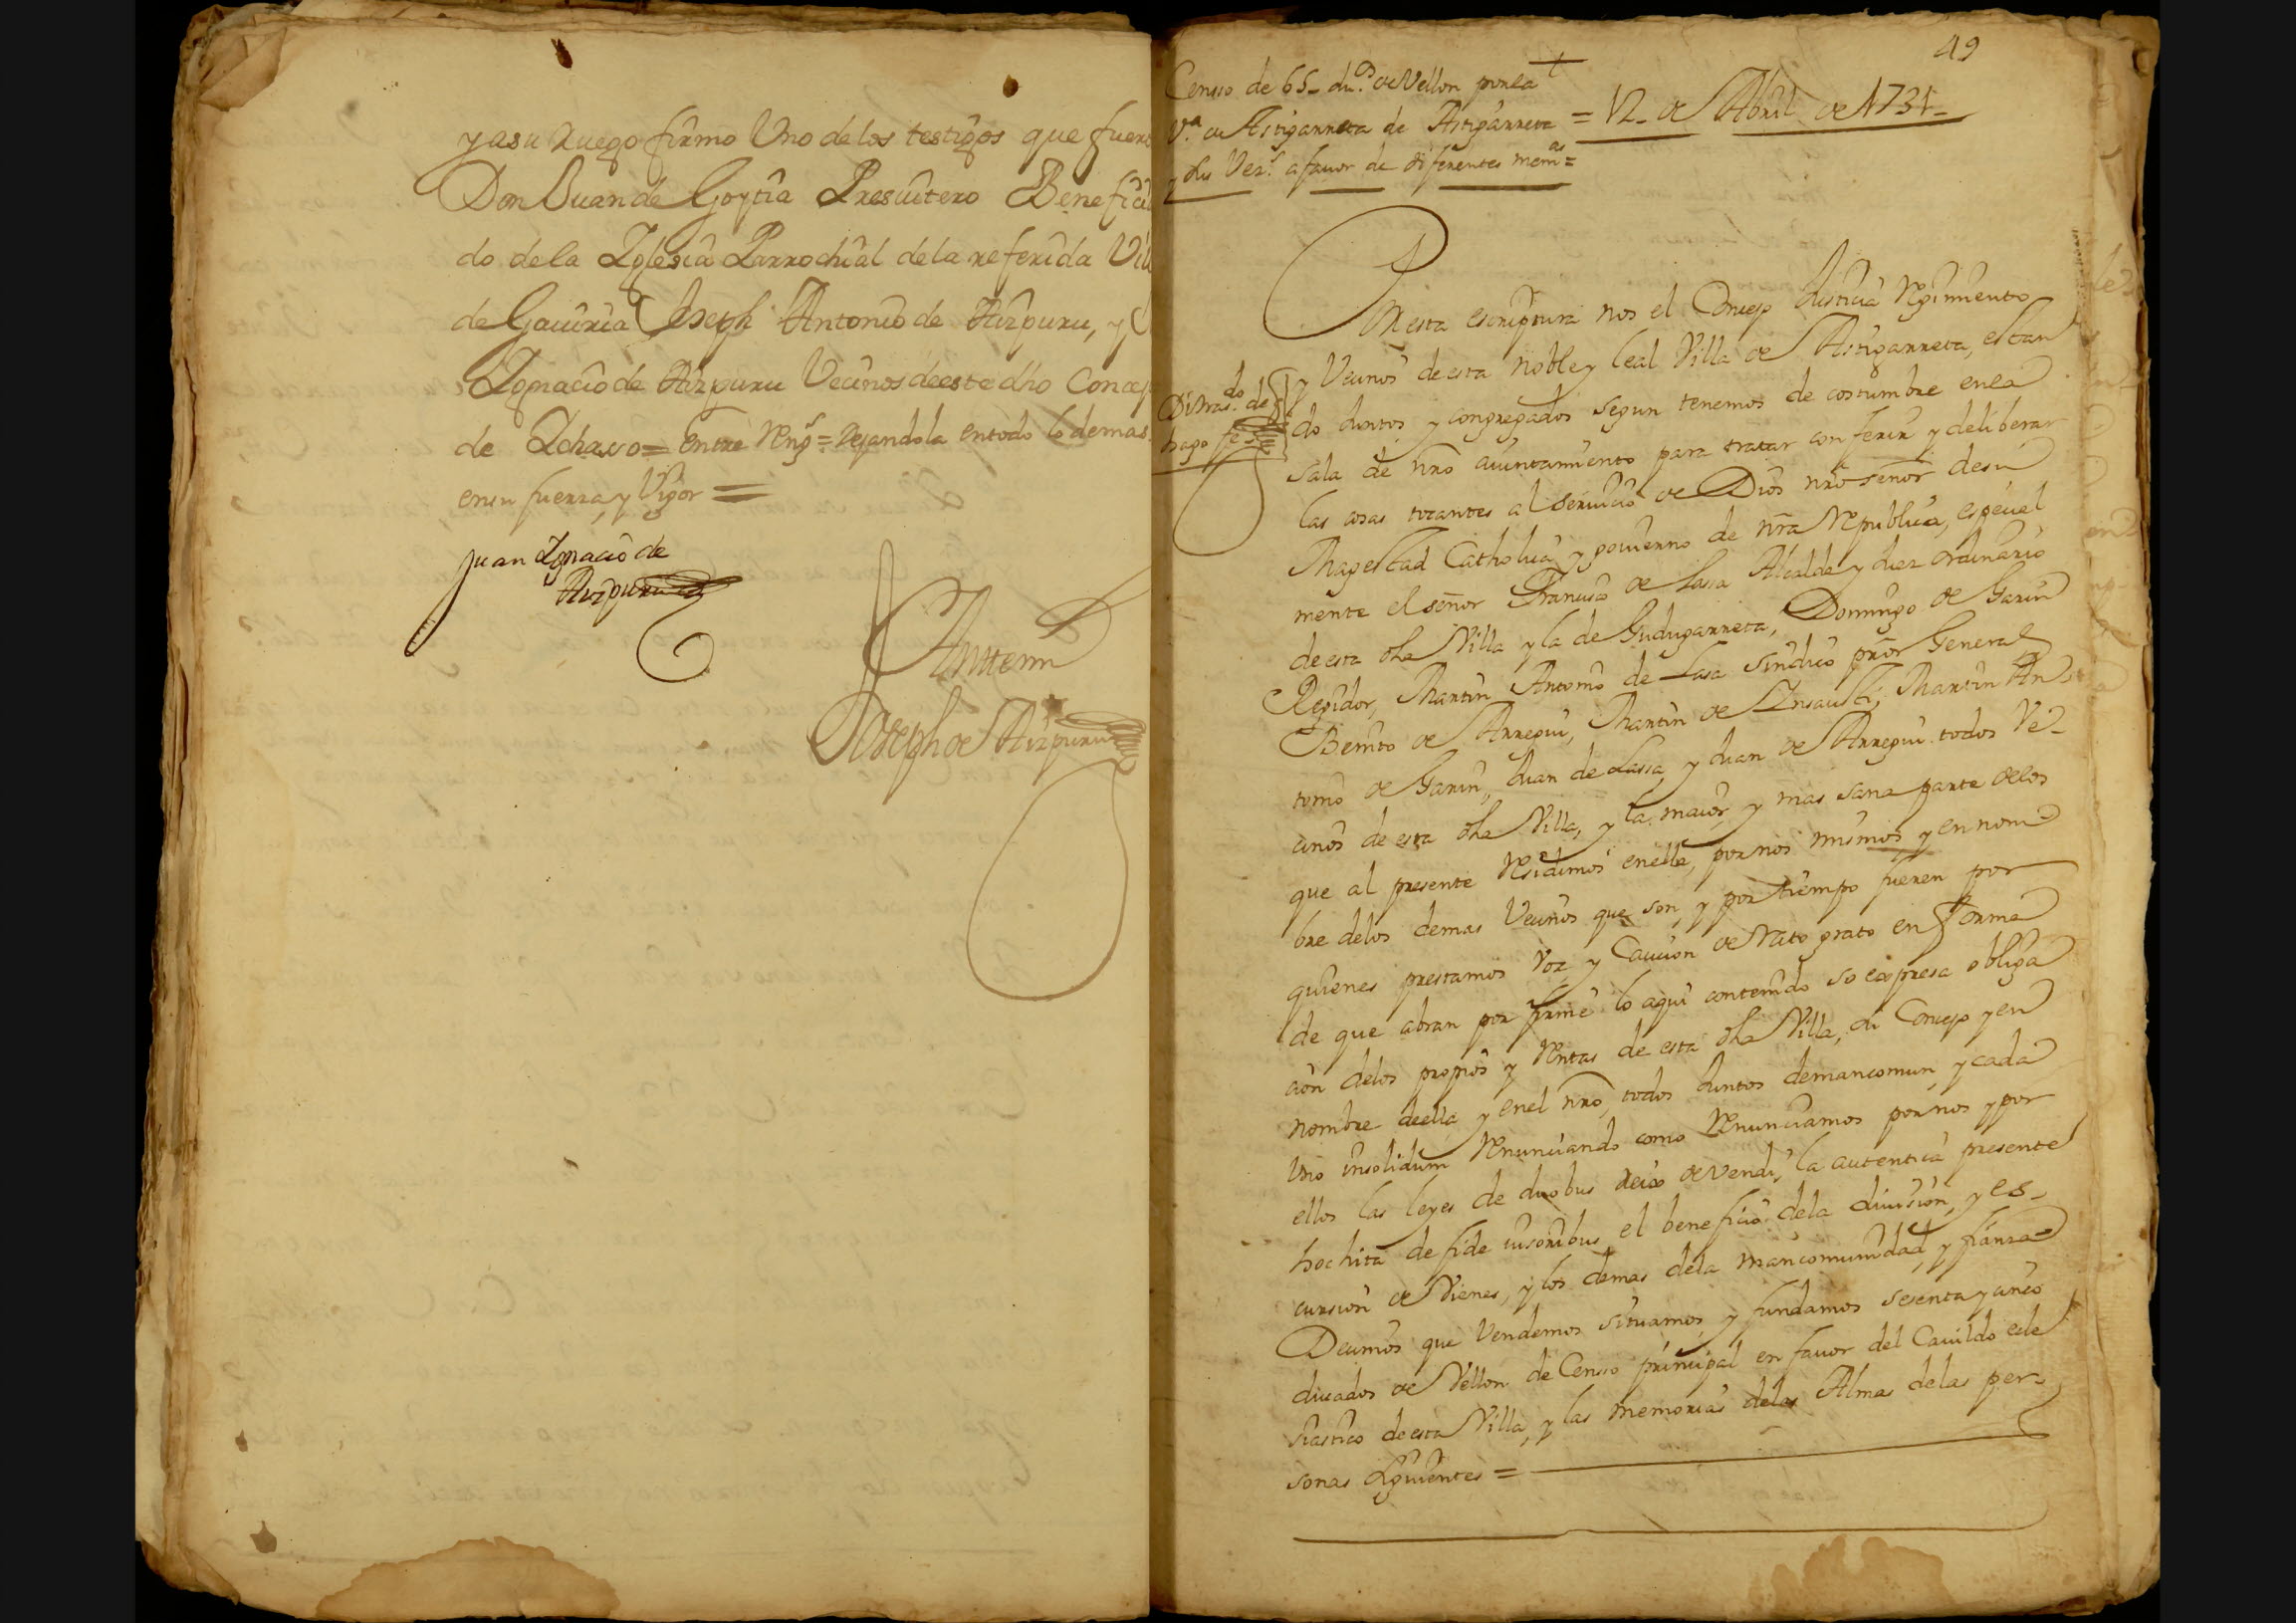 y asu Ruego firmo Uno de los testigos que fuero
Don Juan de Goytia Presuitero Benefici
do de la Iglesia Parrochial de la referida Vill
de Gauiria Joseph Antonio de Aizpuru, y
Ignacio de Aizpuru Vecinos de este dho Concej
de Ichasso = entre Reng.s = dejandola en todo lo demas
en su fuerza, y Vigor =
Juan Ignacio de
Aizpuru
Antemi
Joseph de Aizpuru
49
Censo de 65_ du.os de Vellon por la
V.a de Astigarreta de Astigarreta
y sus Vez.s a fauor de diferentes mem.as =
= 12_ de Abril de 1731_
En esta escriptura nos el Concejo Justicia Regimiento
y Vecinos de esta noble y leal Villa de Astigarreta, estan
do Juntos y congregados segun tenemos de costumbre en la
sala de nro aiuntamiento para tratar conferir y deliberar
las cosas tocantes al seruicio de Dios nro señor de su
Magestad Catholica y gouierno de nra Republica, especial
mente el señor Francisco de Lasa Alcalde y Juez ordinario
de esta dha Villa y la de Gudugarreta, Domingo de Garin
Regidor, Martin Antonio de Lasa sindico pror General
Benito de Arregui, Martin de Insausti, Martin An
tonio de Garin, Juan de Lassa, y Juan de Arregui todos Ve_
cinos de esta dha Villa, y la maior, y mas sana parte de los
que al presente Residimos en ella, por nos mismos y en nom
bre de los demas Vecinos que son, y por tiempo fueren por
quienes prestamos Voz y Caucion de Rato grato en forma
de que abran por firme lo aqui contenido so expresa obliga
cion de los propios y Rentas de esta dha Villa, su Concejo y en
nombre de ella y en el nro, todos Juntos de mancomun, y cada
Uno insolidum Renunciando como Renunciamos por nos y por
ellos las leyes de duobus Reix devendi, la autentica presente
hochita de fide iusoribus el beneficio de la diuision, y es_
cursion de Vienes, y los demas de la mancomunidad, y fianza
Decimos que Vendemos situamos, y fundamos sesenta y cinco
ducados de Vellon de Censo principal en fauor del Cauildo ecle
siastico de esta Villa, y las memorias de las Almas de las per_
sonas siguientes =
Disttras.do de
hago fe